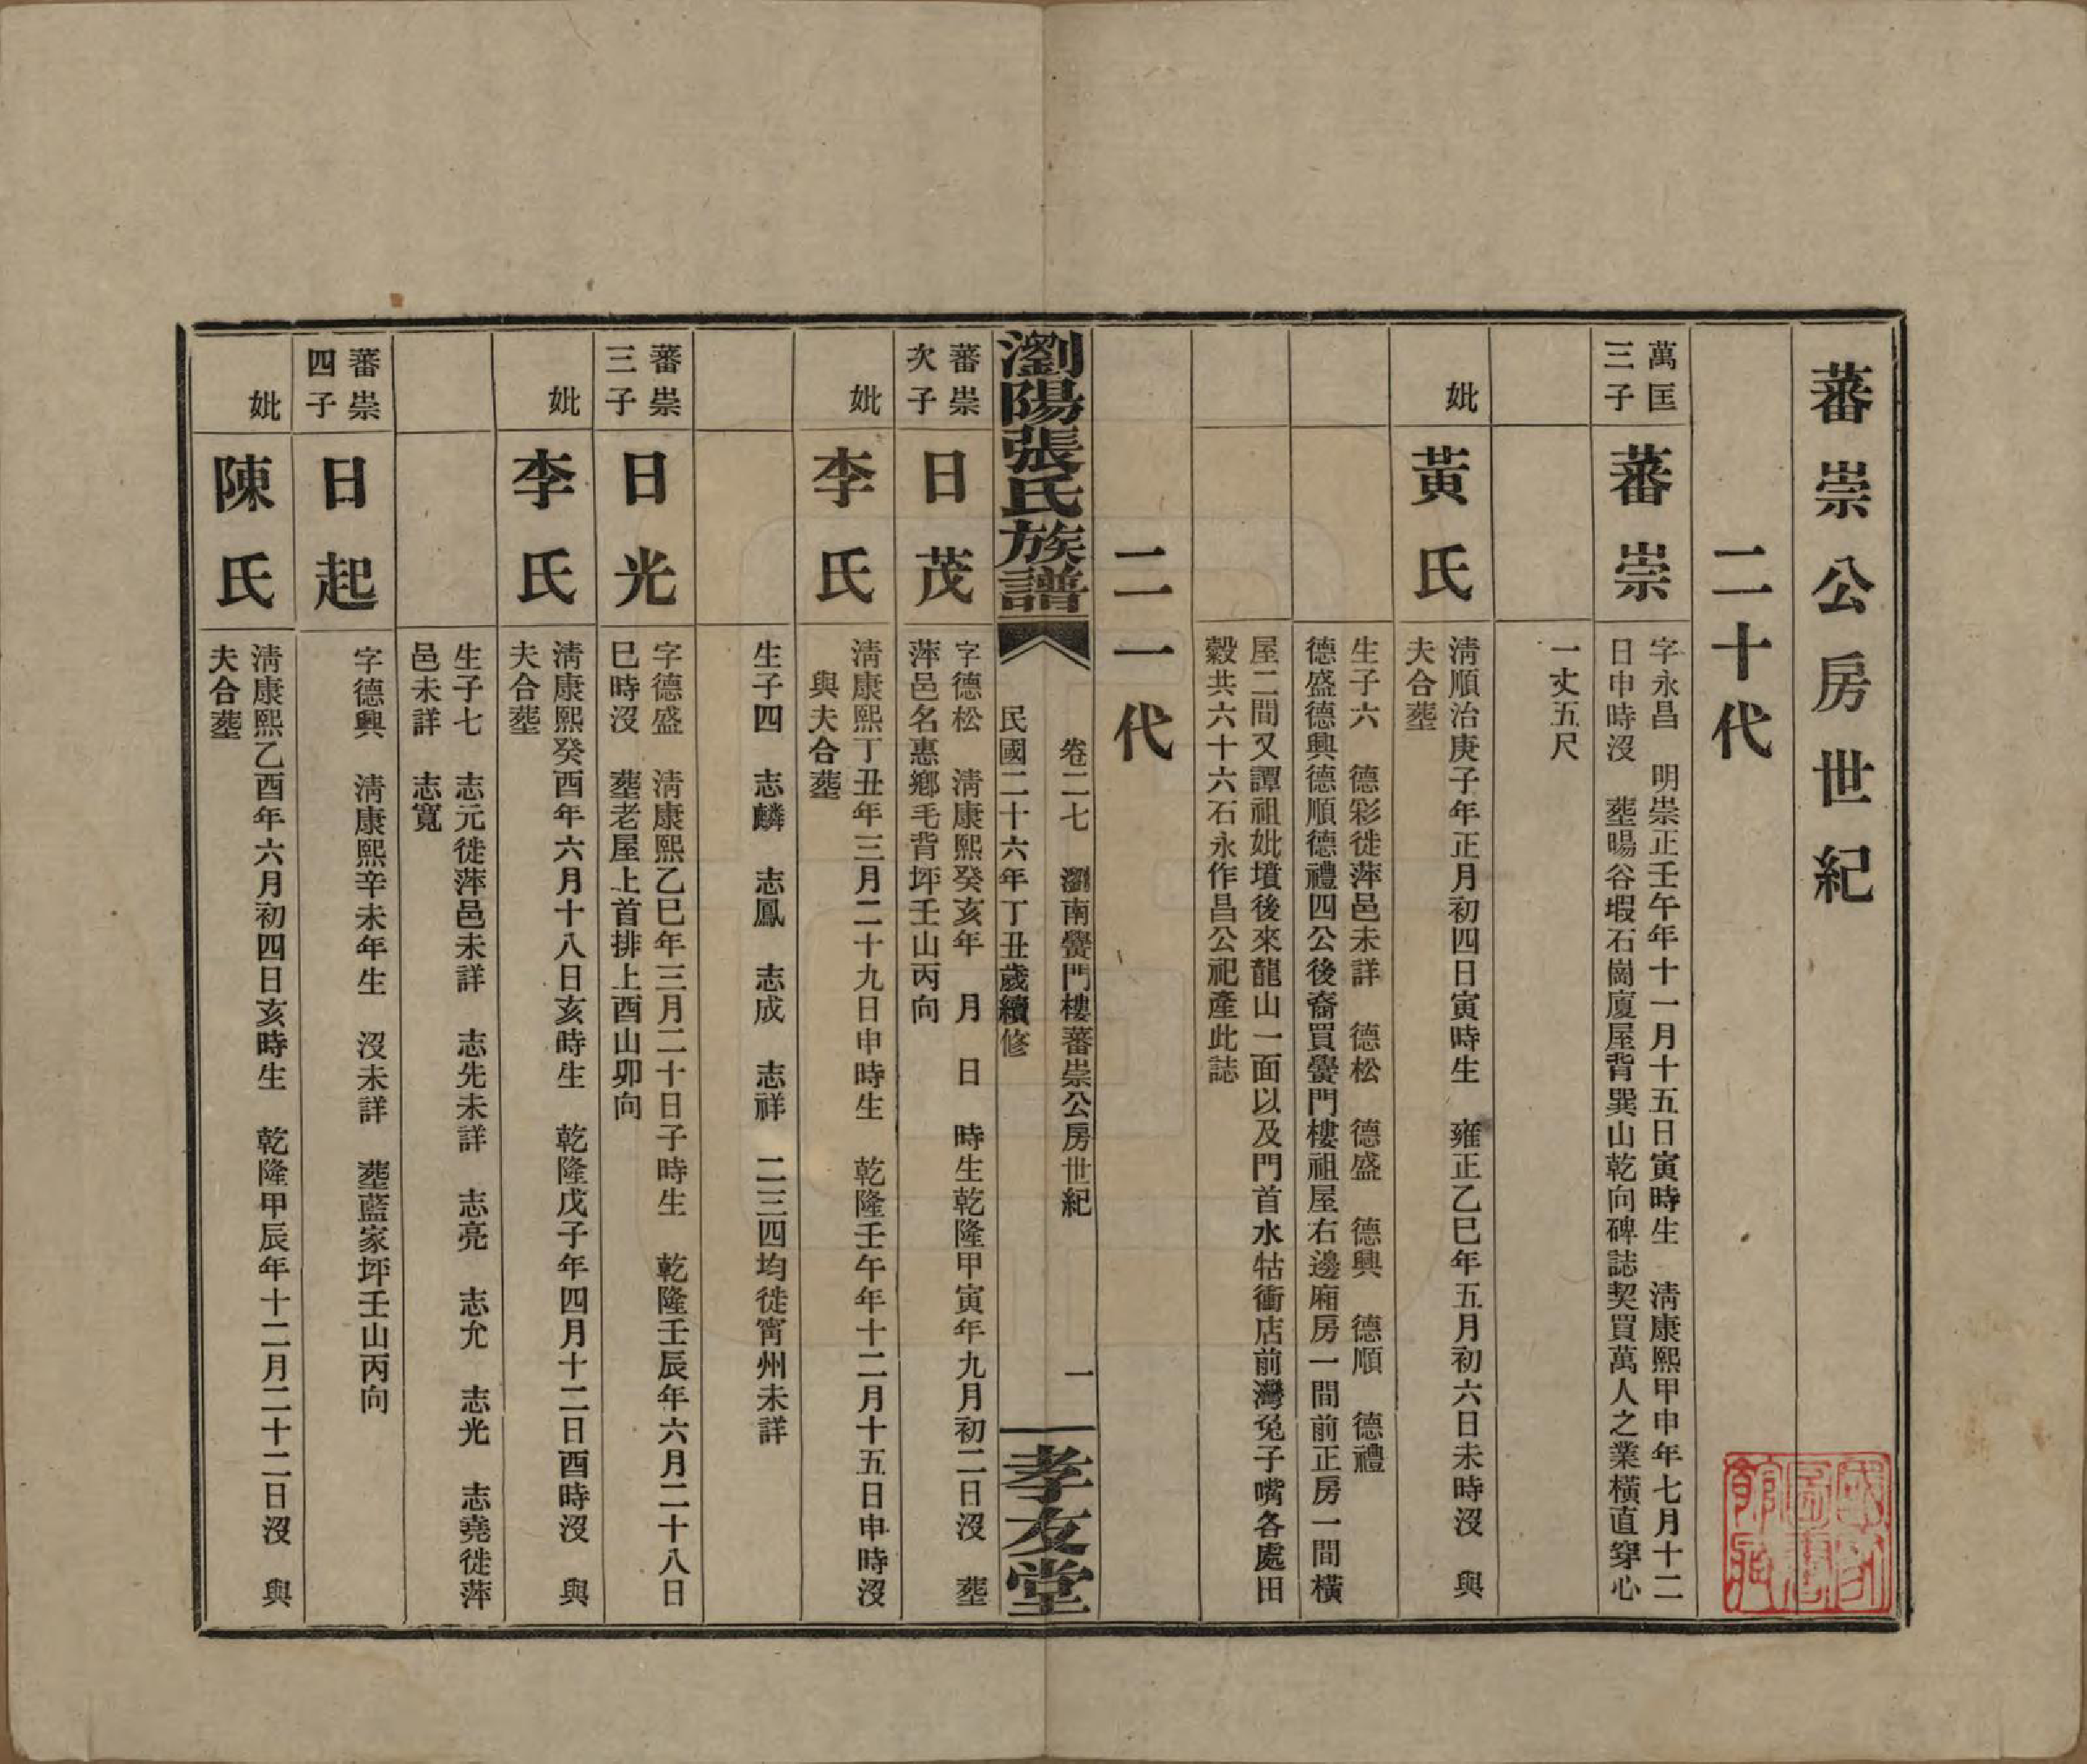 蕃崇公房世紀
二十代
萬匡
三子
蕃崇
字永昌 明崇正壬午年十一月十五日寅時生 淸康熙甲申年七月十二
日申時沒 塟暘谷塅石崗廈屋背巽山乾向碑誌契買萬人之業橫直穿心
一丈五尺
妣
黃氏
淸順治庚子年正月初四日寅時生 雍正乙巳年五月初六日未時沒 與
夫合塟
生子六 德彩徙萍邑未詳 德松 德盛 德興 德順 德禮
德盛德興德順德禮四公後裔買釁門樓祖屋右邊廂房一間前正房一間橫
屋二間又譚祖妣墳後來龍山一面以及門首水牯衝店前灣兔子嘴各處田
穀共六十六石永作昌公祀產此誌
二一代
瀏陽張氏族譜
卷二七 瀏南釁門樓蕃崇公房世紀 一
民國二十六年丁丑歲續修
孝友堂
蕃崇
次子
日茂
字德松 淸康熙癸亥年 月 日 時生乾隆甲寅年九月初二日沒 塟
萍邑名惠鄉毛背坪壬山丙向
妣
李氏
淸康熙丁丑年三月二十九日申時生 乾隆壬午年十二月十五日申時沒
與夫合塟
生子四 志麟 志鳳 志成 志祥 二三四均徙甯州未詳
蕃崇
三子
日光
字德盛 淸康熙乙巳年三月二十日子時生 乾隆壬辰年六月二十八日
巳時沒 塟老屋上首排上酉山卯向
妣
李氏
淸康熙癸酉年六月十八日亥時生 乾隆戊子年四月十二日酉時沒 與
夫合塟
生子七 志元徙萍邑未詳 志先未詳 志亮 志允 志光 志堯徙萍
邑未詳 志寬
蕃崇
四子
日起
字德興 淸康熙辛未年生 沒未詳 塟藍家坪壬山丙向
妣
陳氏
淸康熙乙酉年六月初四日亥時生 乾隆甲辰年十二月二十二日沒 與
夫合塟